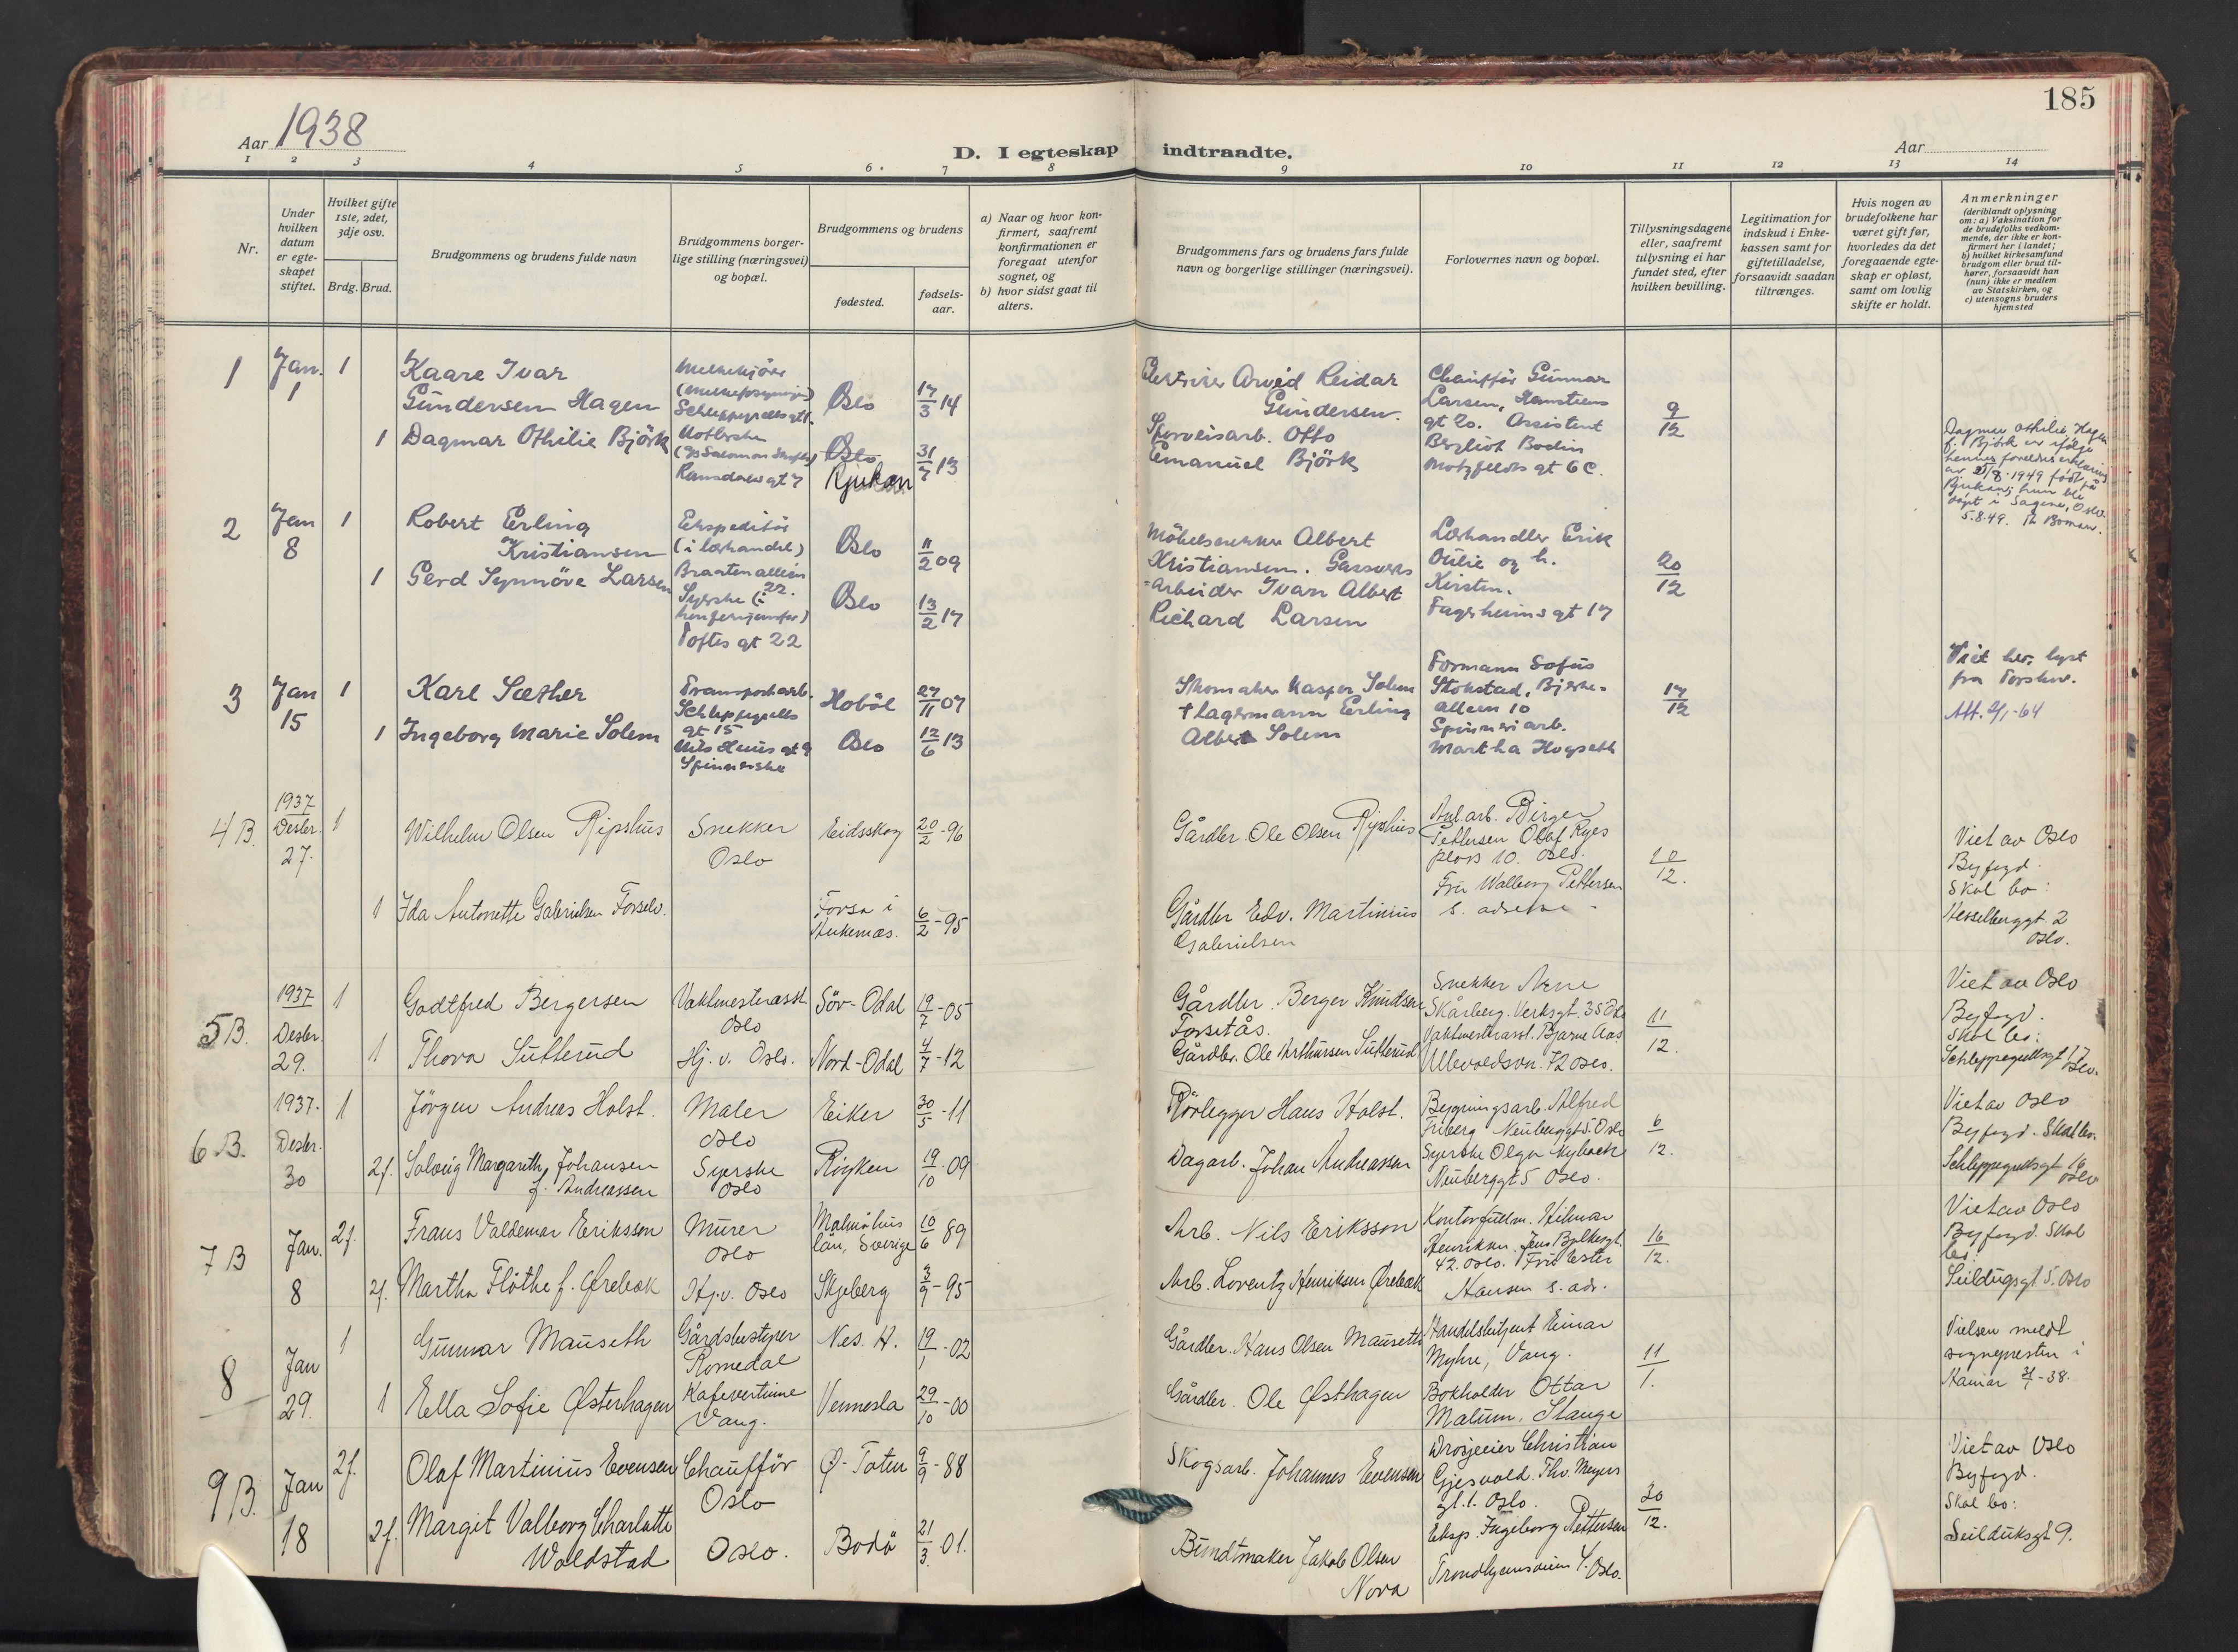 185
Aar 1938
D. I egteskap indtraadte.
Aar
1 2 3 4 5 6 7 8 9 10 11 12 13 14
Nr.
Under hvilken datum er egteskapet stiftet.
Hvilket gifte 1ste, 2det, 3dje osv.
Brdg. Brud.
Brudgommens og brudens fulde navn
Brudgommens borgerlige stilling (næringsvei) og bopæl.
Brudgommens og brudens
fødested.
fødselsaar.
a) Naar og hvor konfirmert, saafremt konfirmationen er foregaat utenfor sognet, og
b) hvor sidst gaat til alters.
Brudgommens fars og brudens fars fulde navn og borgerlige stillinger (næringsvei).
Forlovernes navn og bopæl.
Tillysningsdagene eller, saafremt tillysning ei har fundet sted, efter hvilken bevilling.
Legitimation for indskud i Enkekassen samt for giftetilladelse, forsaavidt saadan tiltrænges.
Hvis nogen av brudefolkene har været gift før, hvorledes da det foregaaende egteskap er opløst, samt om lovlig skifte er holdt.
Anmerkninger
(deriblandt oplysning om: a) Vaksination for de brudefolks vedkommende, der ikke er konfirmert her i landet; b) hvilket kirkesamfund brudgom eller brud tilhører, forsaavidt han (hun) ikke er medlem av Statskirken, og c) utensogns bruders hjemsted
1
Jan. 1
1
Kaare Ivar
Gundersen Hagen
Melkekjører
Schleppegrells gt 1.
Oslo
17/3 14
Arvid Reidar
Gundersen.
Chauffør Gunnar
Larsen,
gt 20. Assistent
Bergliot Bodin
Motzfeldts gt 6 C.
9/12
1 Dagmar Othilie Björk
Oslo
Rjukan
31/7 13
Sporveisarb. Otto
Emanuel Björk
Dagmar Othilie Hagen
f. Björk er ifølge
hennes foreldres erklæring
1949 født på
Rjukan; hun ble
døpt i Sagene, Oslo.
5.8.49.
2
Jan 8
1
Robert Erling
Kristiansen
Ekspeditør
(i lærhandel)
Braatenalleen
22.
Oslo
11/2 09
Möbelsnekker Albert
Kristiansen. Gassverks
-arbeider Ivar Albert
Richard Larsen
Lærhandler Erik
Oulie og h.
Kirsten.
Fagerheimsgt 17
20/12
1 Gerd Synnöve Larsen
Syerske (i
Toftes gt 22
Oslo
13/2 17
3
Jan 15
1
Karl Sæther
Transportarb.
Schleppegrells
gt 15
Hobøl
27/11 07
Skomaker Kasper Solem
† Lagermann Erling
Albert Solem
Formann Sofus
Stokstad, Bjerke-
alleen 10
Spinneriarb.
Martha Hogseth
17/12
Viet her, lyst
fra Torshov.
1 Ingeborg Marie Solem
Nils Huus gt 9
Spinnerske
Oslo
12/6 13
4 B.
1937
Desbr. 27.
1
Wilhelm Olsen Ripshus
Snekker
Oslo
Eidsskog
20/2 -96
Gårdbr. Ole Olsen Ripshus
Birger
Pettersen Olaf Ryes
plass 10. Oslo.
Fru Walborg Pettersen
s. adresse
10/12.
Viet av Oslo
Byfogd.
Skal bo:
Hesselberggt. 2
Oslo.
1 Ida Antonette Gabrielsen Forselv.
Forsa i
Ankenæs.
6/2 -95
Gårdbr Edv. Martinius
Gabrielsen
5 B.
1937
Desbr. 29.
1
Godtfred Bergersen
Vaktmesterasst.
Oslo
Söv-Odal
19/7 -05
Gårdbr. Berger Knudsen
Forsetås.
Snekker Arne
Skårberg. Verksgt. 35 Oslo
Vaktmesterasst. Bjarne Aas
Ullevoldsvn. 72 Oslo.
11/12.
Viet av Oslo
Byfogd.
Skal bo:
Schleppegrellsgt 17
Oslo.
1 Thora Sutterud
Hj. v. Oslo.
Nord-Odal
4/7 -12
Gårdbr. Ole Arthursen Sutterud
6 B.
1937.
Desbr. 30
1
Jörgen Andreas Holst.
Maler
Oslo
Eiker
30/5 -11
Rörlegger Hans Holst.
Bygningsarb. Alfred
Friberg Neuberggt 5. Oslo
Syerske Olga
Neuberggt 5 Oslo.
6/12.
Viet av Oslo
Byfogd. Skal bo.
Schleppegrellsgt 16
Oslo
2f. Solveig Margareth Johansen
f. Andreassen
Syerske
Oslo
Röyken
19/10 -09
Dagarb. Johan Andreassen
7 B
Jan. 8
2f.
Frans Valdemar Eriksson
Murer
Oslo
Malmöhus
län, Sverige
10/6 89
Arb. Nils Eriksson
Kontorfullm. Hilmar
Henriksen. Jens Bjelkesgt.
42. Oslo. Fru Ester
Hansen s. adr.
16/12.
Viet av Oslo
Byfogd. Skal
bo:
Seildugsgt 5. Oslo
2f. Martha Flöthe f. Ørebæk
Hj. v. Oslo
Skjeberg
3/9 -95
Arb. Lorentz Henriksen Ørebæk
8
Jan 29.
1
Gunnar Mauseth
Gårdsbestyrer
Romedal
Nes. H.
19/1 -02
Gårdbr. Hans Olsen Mauseth
Handelsbetjent Einar
Myhre, Vang.
Bokholder Ottar
Malum, Stange
11/1.
Vielsen meldt
sognepresten i
Hamar -38.
1 Ella Sofie Østerhagen
Kafevertinne
Vang.
Vennesla
29/10 -00
Gårdbr. Ole Østhagen
9 B.
Jan 18
2f.
Olaf Martinius Evensen
Chaufför
Oslo
Ø-Toten
9/9 -88
Skogsarb. Johannes Evensen
Drosjeeier Christian
Gjesvold. Thv. Meyers
gt. 1. Oslo.
Eksp. Ingeborg Pettersen
Trondhjemsveien 4. Oslo.
30/12.
Viet av Oslo
Byfogd.
Skal bo:
Seilduksgt 9.
2f. Margit Valborg Charlotte
Woldstad
Oslo.
Bodö
21/3 -01.
Buntmaker Jakob Olsen
Nova